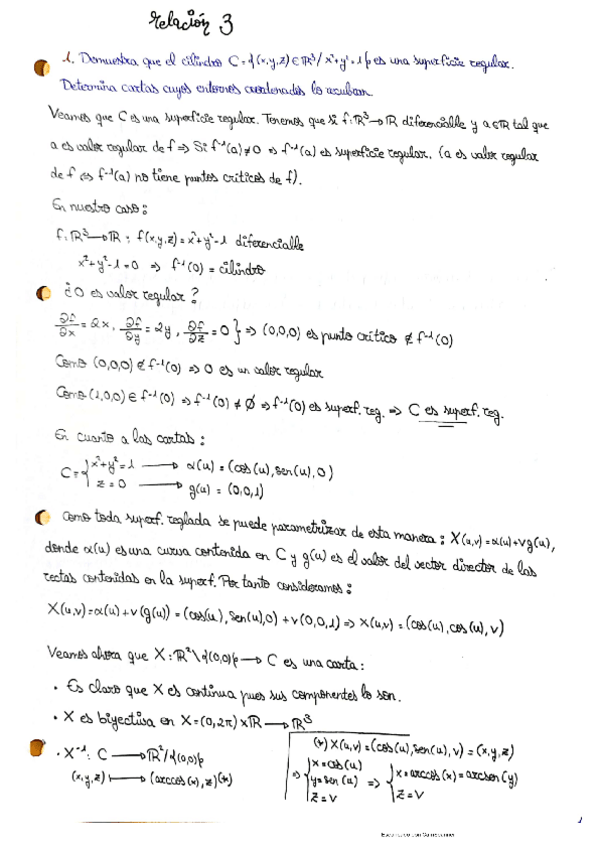 Relación 3
1. Demuestra que el cilindro C={(x,y,z)∈ℝ³/x²+y²=1} es una superficie regular.
Determina cartas cuyos entornos coordenados lo recubran.
Veamos que C es una superficie regular. Tenemos que si f:ℝ³→ℝ diferenciable y a∈ℝ tal que
a es valor regular de f ⇒ Si f⁻¹(a)≠0 ⇒ f⁻¹(a) es superficie regular. (a es valor regular
de f ⇔ f⁻¹(a) no tiene puntos críticos de f).
En nuestro caso:
f:ℝ³→ℝ : f(x,y,z)=x²+y²-1 diferenciable
x²+y²-1=0 ⇒ f⁻¹(0)=cilindro
¿0 es valor regular?
∂f/∂x=2x, ∂f/∂y=2y, ∂f/∂z=0 } ⇒ (0,0,0) es punto crítico ∉ f⁻¹(0)
Como (0,0,0)∉f⁻¹(0) ⇒ 0 es un valor regular
Como (1,0,0)∈f⁻¹(0) ⇒ f⁻¹(0)≠∅ ⇒ f⁻¹(0) es superf. reg. ⇒ C es superf. reg.
En cuanto a las cartas:
C={ x²+y²=1 → α(u)=(cos(u),sen(u),0)
z=0 → g(u)=(0,0,1)
Como toda superf. reglada se puede parametrizar de esta manera: X(u,v)=α(u)+vg(u),
donde α(u) es una curva contenida en C y g(u) es el valor del vector director de las
rectas contenidas en la superf. Por tanto consideramos:
X(u,v)=α(u)+v(g(u))=(cos(u),sen(u),0)+v(0,0,1) ⇒ X(u,v)=(cos(u),cos(u),v)
Veamos ahora que X:ℝ²\{(0,0)}→C es una carta:
· Es claro que X es continua pues sus componentes lo son.
· X es biyectiva en X=(0,2π)×ℝ→ℝ³
· X⁻¹: C→ℝ²/{(0,0)}
(x,y,z)↦(arccos(x),z)(*)
(*) X(u,v)=(cos(u),sen(u),v)=(x,y,z)
⇒ { x=cos(u)
y=sen(u) ⇒ { x=arccos(x)=arcsen(y)
z=v z=v
Escaneado con CamScanner